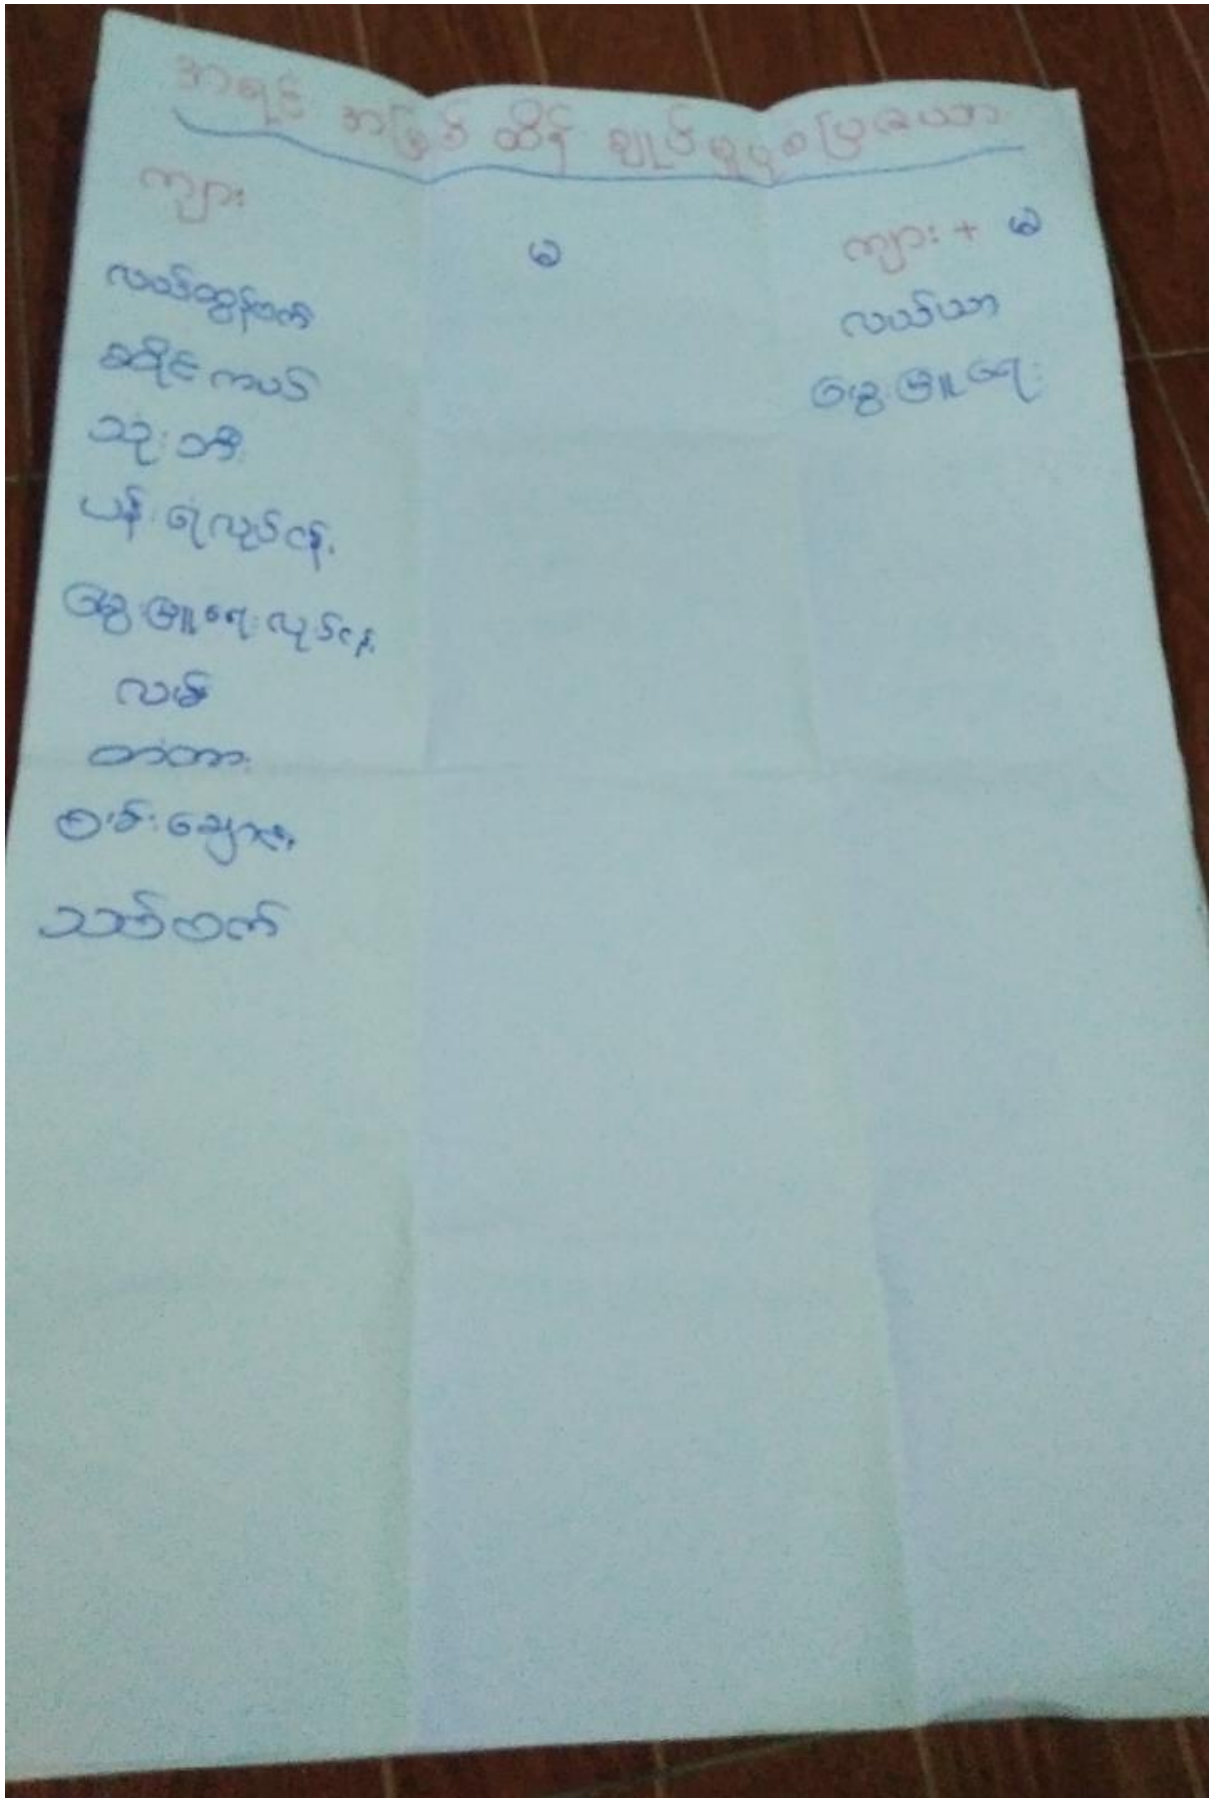 အရင်းအမြစ် ထိန်းချုပ်မှုပုစပြဇယား
ကျား
လယ်ထွန်စက်
ဆိုင်ကယ်
သုံးဘီး
ပန်းရံလုပ်ငန်း
မွေးမြူရေးလုပ်ငန်း
လမ်း
တံတား
စမ်းချောင်း
သင်္ဘောစက်
မ
ကျား + မ
လယ်ယာ
မွေးမြူရေး